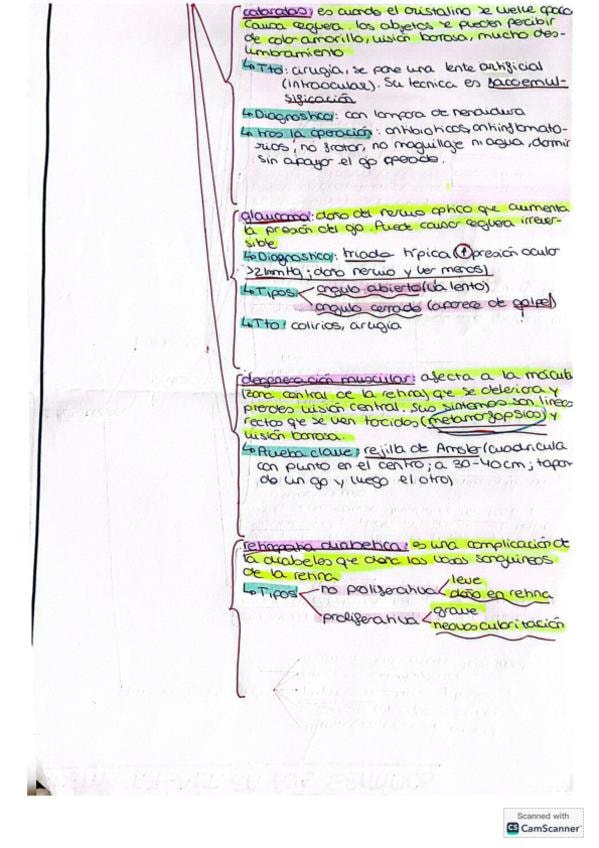 cataratas: es cuando el cristalino se vuelve opaco
causa ceguera. los objetos se pueden percibir
de color amarillo, visión borosa, mucho des-
lumbramiento
↳Tto: cirugía, se pone una lente artificial
(introocular). Su tecnica es facoemul-
sificación
↳Diagnostico: con lampara de hendidura
↳tras la operación: antibioticos, antiinflamato-
rios, no frotar, no maquillaje ni agua, dormir
sin apoyar el ojo operado.
glaucoma: daño del nervio optico que aumenta
la presión del ojo. Puede causar ceguera irrever-
sible
↳Diagnostico: triada típica (↑ presión ocular
>21mmHg; daño nervio y ver menos)
↳Tipos
angulo abierto (va lento)
angulo cerrado (aparece de golpe)
↳Tto: colirios, cirugía
degeneración muscular: afecta a la mácula
(zona central de la retina) que se deteriora y
pierdes visión central. Sus sintomas son lineas
rectas que se ven torcidas (metamorfopsias) y
visión borrosa.
↳Prueba clave: rejilla de Amsler (cuadricula
con punto en el centro; a 30-40cm; tapar
de un ojo y luego el otro)
retinopatia diabetica: es una complicación de
la diabetes que daña los vasos sanguineos
de la retina
↳Tipos
no poliferativa
leve
daño en retina
proliferativa
grave
Scanned with
CS CamScanner